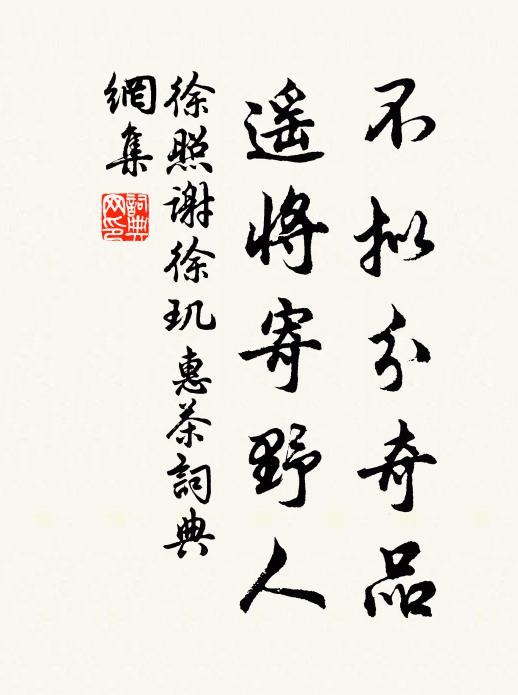 不拟分奇品
遥将寄野人
徐照谢徐玑惠茶詞典
網集
詞典
网印